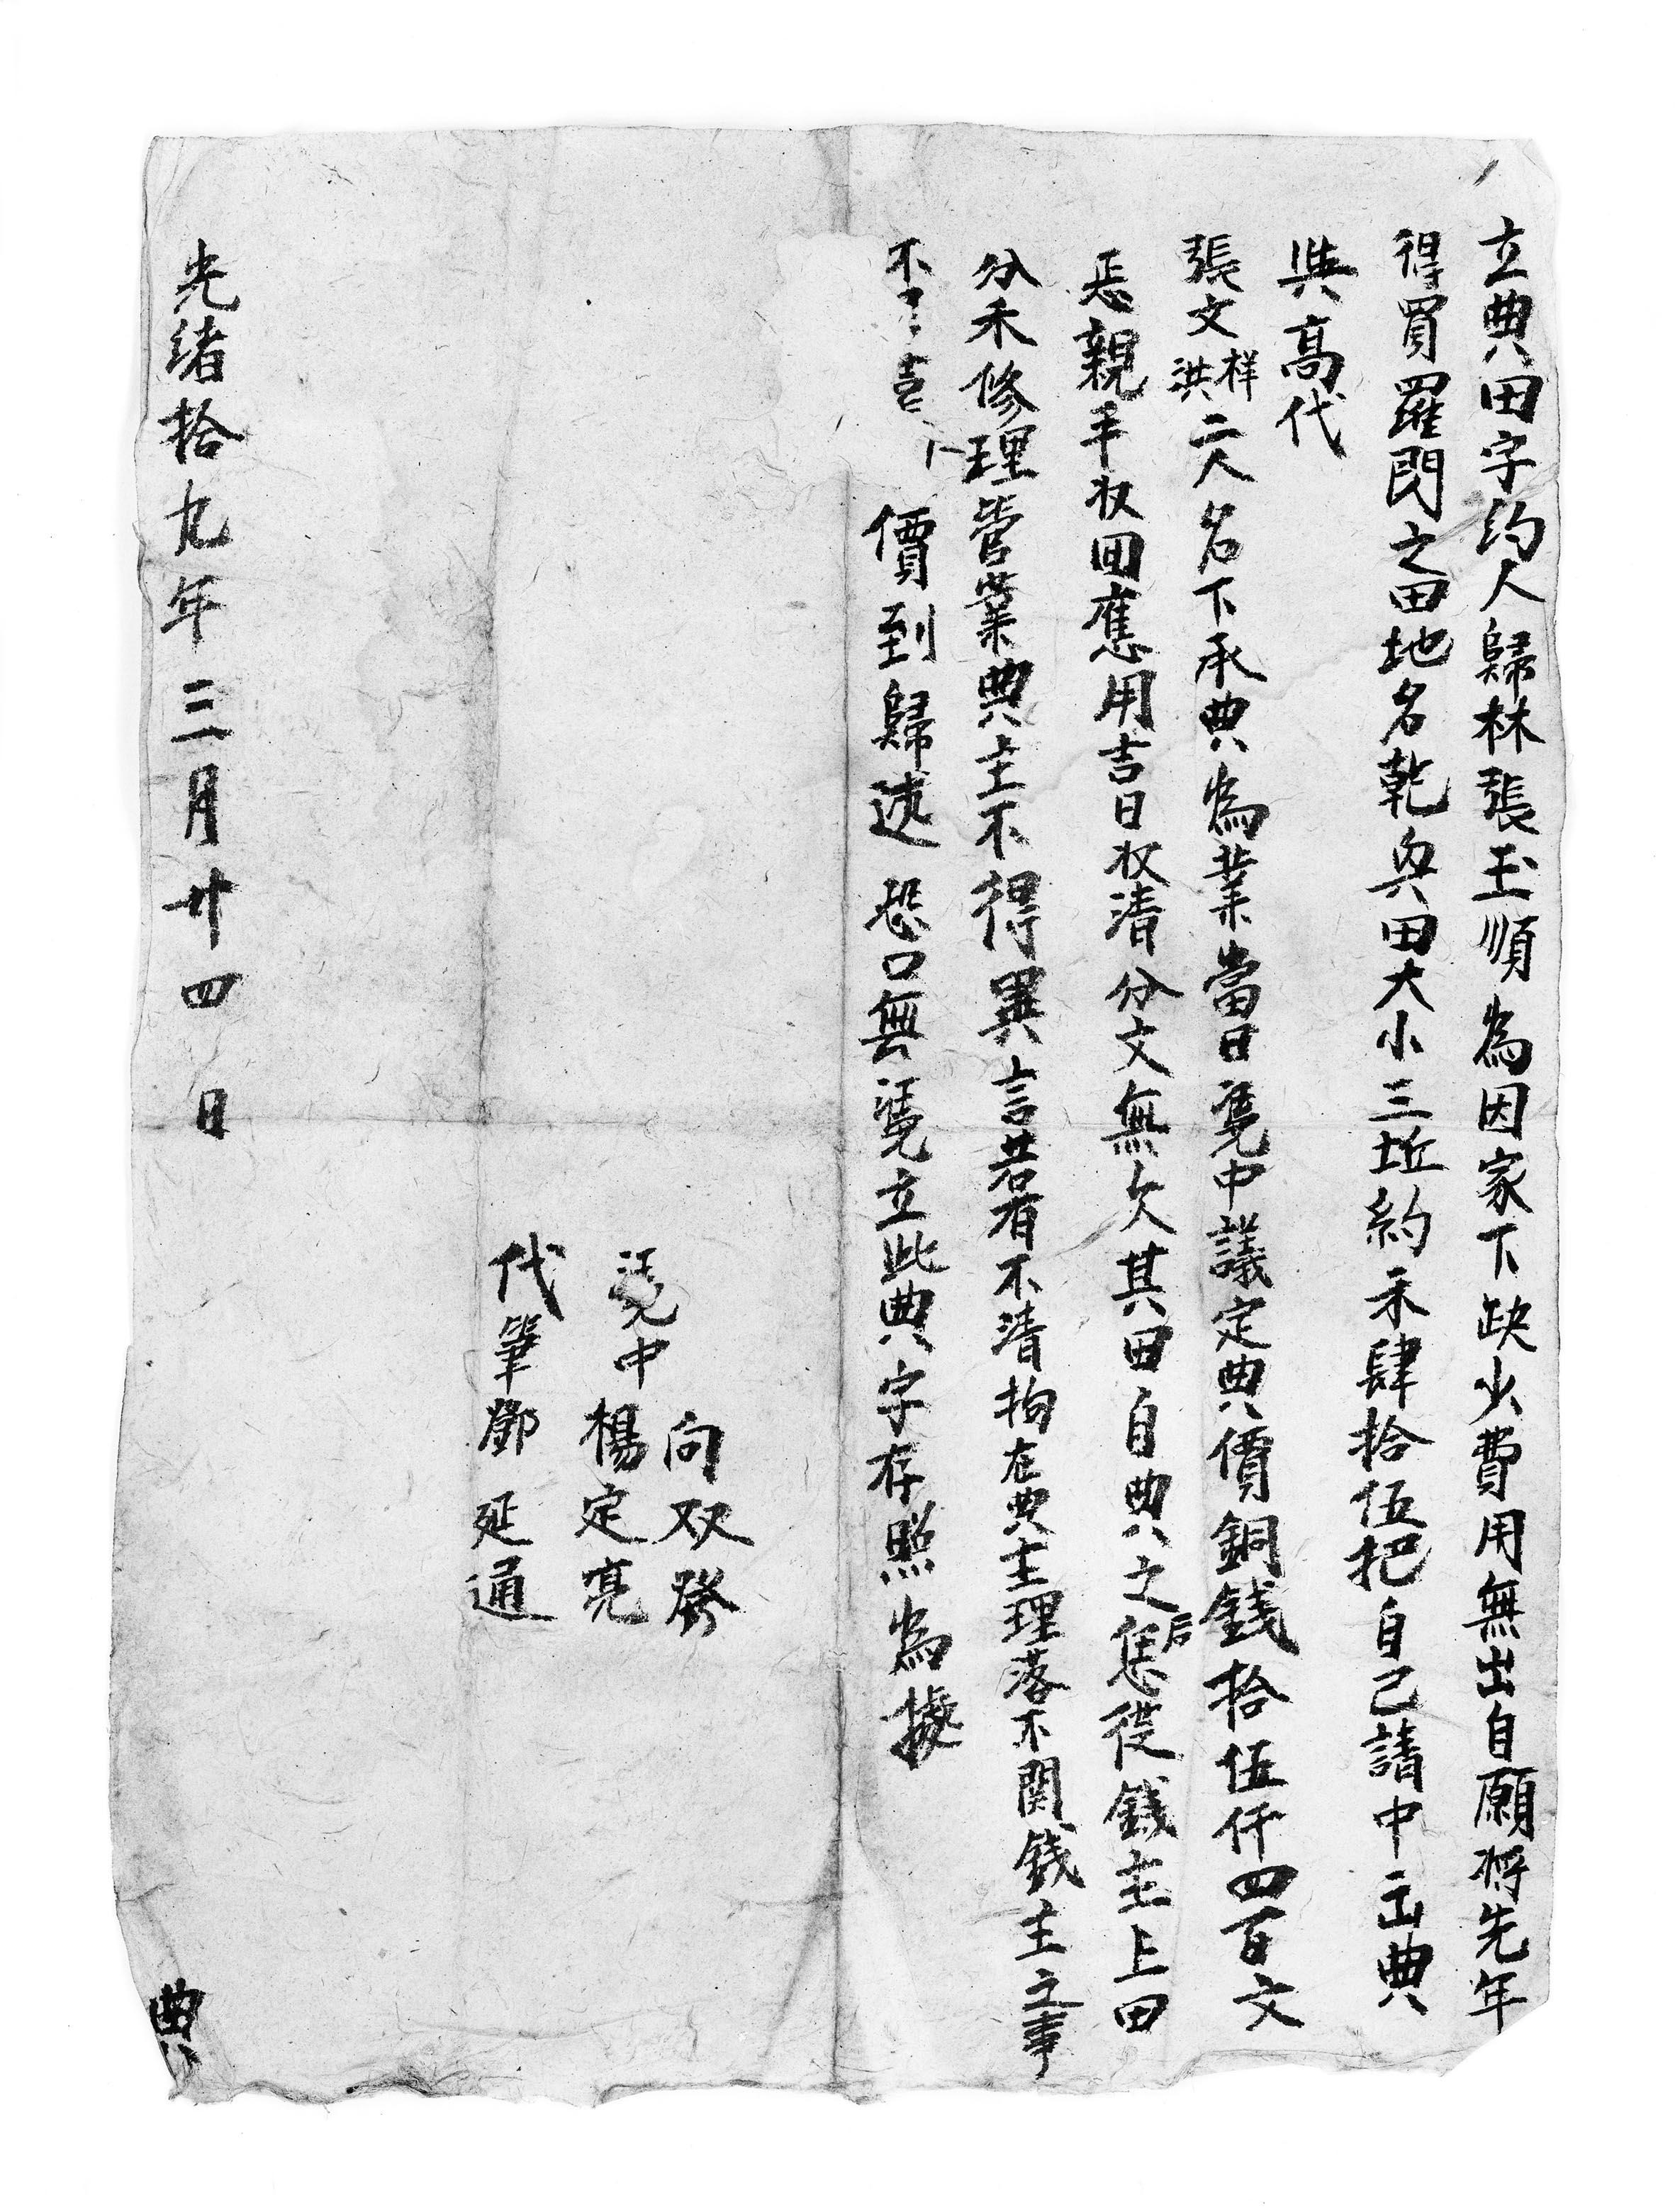 立典田字約人歸林張玉順為因家下缺少費用無出自願將先年
得買羅閃之田地名乾與田大小三坵約禾肆拾伍把自己請中出典
與高代
張文祥洪二人名下承典為業當日凴中議定典價銅錢拾伍仟四百文
親手收回應用吉日收清分文無欠其田自典之后恁從錢主上田
分禾修理管業典主不得異言若有不清拘在典主理落不関錢主之事
不 價到歸還恐口無凴立此典字存照為據
向双發
凴中楊定亮
代筆鄧延通
光緒拾九年三月廿四日
典